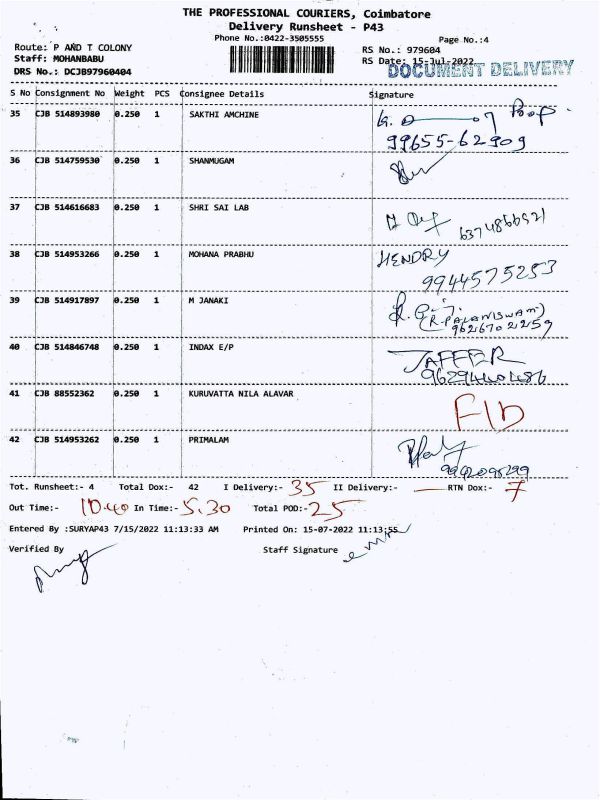 THE PROFESSIONAL COURIERS, Coimbatore
Delivery Runsheet - P43
Phone No.:0422-3505555
Page No.:4
Route: P AND T COLONY
RS No.: 979604
Staff: MOHANBABU
RS Date: 15-Jul-2022
DOCUMENT DELIVERY
DRS No.: DCJB97960404
S No Consignment No Weight PCS Consignee Details Signature
35 CJB 514893980 0.250 1 SAKTHI AMCHINE
99655-62909
36 CJB 514759530 0.250 1 SHANMUGAM
37 CJB 514616683 0.250 1 SHRI SAI LAB
6374866921
38 CJB 514953266 0.250 1 MOHANA PRABHU HENDRY
9944575253
39 CJB 514917897 0.250 1 M JANAKI
(R.PALANISWAMI)
9626702259
40 CJB 514846748 0.250 1 INDAX E/P JAFFER
41 CJB 88552362 0.250 1 KURUVATTA NILA ALAVAR F/D
42 CJB 514953262 0.250 1 PRIMALAM
Tot. Runsheet:- 4 Total Dox:- 42 I Delivery:- 35 II Delivery:- — RTN Dox:- 7
Out Time:- 10.40 In Time:- 5.30 Total POD:- 25
Entered By :SURYAP43 7/15/2022 11:13:33 AM Printed On: 15-07-2022 11:13:55
Verified By Staff Signature